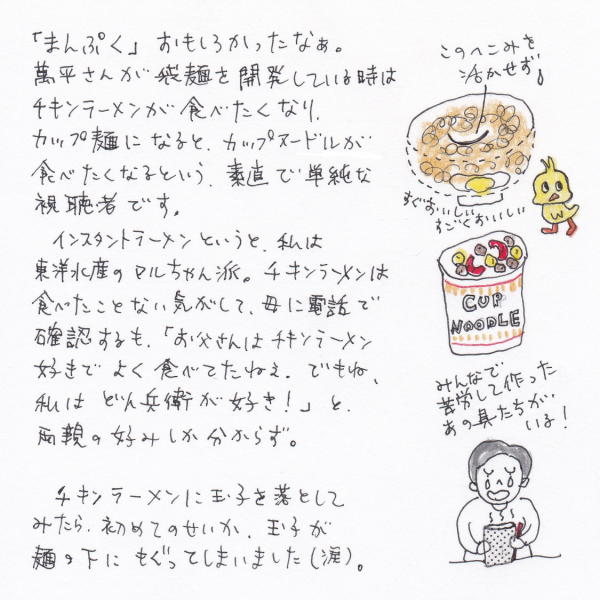 「まんぷく」おもしろかったなぁ。
萬平さんが袋麺を開発している時は
チキンラーメンが食べたくなり、
カップ麺になると、カップヌードルが
食べたくなるという、素直で単純な
視聴者です。
インスタントラーメンというと、私は
東洋水産のマルちゃん派。チキンラーメンは
食べたことない気がして、母に電話で
確認するも、「お父さんはチキンラーメン
好きでよく食べてたねぇ。でもね、
私はどん兵衛が好き!」と、
両親の好みしか分からず。
チキンラーメンに玉子を落として
みたら、初めてのせいか、玉子が
麺の下にもぐってしまいました(涙)。
このへこみを
活かせず!
すぐおいしい
すごくおいしい
CUP
NOODLE
みんなで
苦労して作った
あの具たちが
いる!